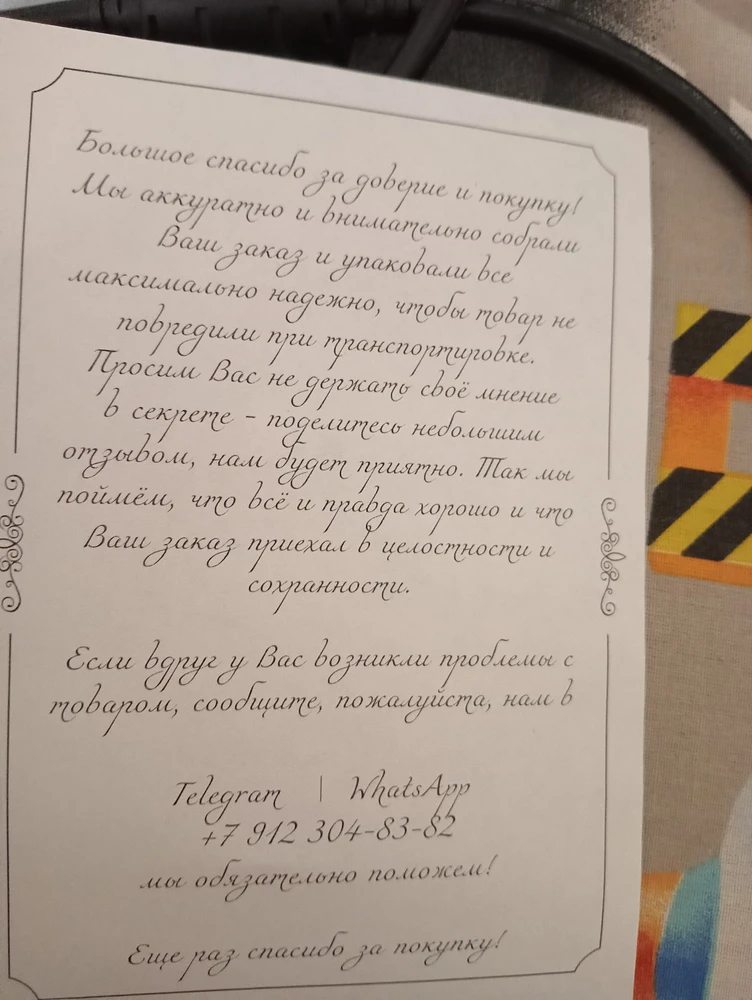 Большое спасибо за доверие и покупку!
Мы аккуратно и внимательно собрали
Ваш заказ и упаковали все
максимально надежно, чтобы товар не
повредили при транспортировке.
Просим Вас не держать своё мнение
в секрете - поделитесь небольшим
отзывом, нам будет приятно. Так мы
поймём, что всё и правда хорошо и что
Ваш заказ приехал в целостности и
сохранности.
Если вдруг у Вас возникли проблемы с
товаром, сообщите, пожалуйста, нам в
Telegram | WhatsApp
+7 912 304-83-82
мы обязательно поможем!
Еще раз спасибо за покупку!